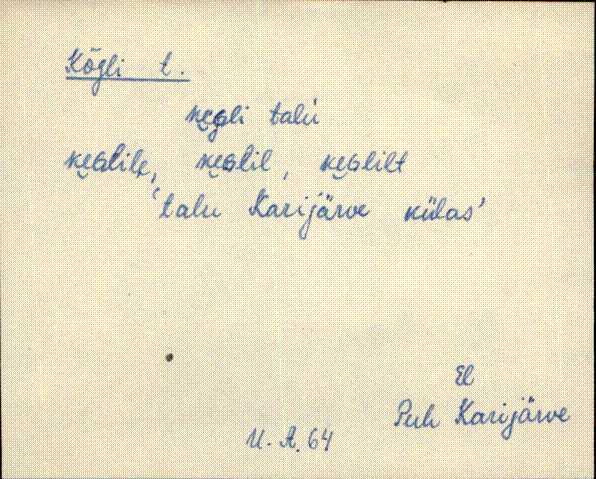 Kõgli t.
ke̮gli talu
ke̮glile, ke̮glil, ke̮glilt
'talu Karijärve külas'
El
Puh Karijärve
U. A. 64